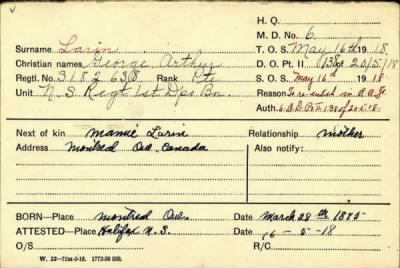 H. Q.
M. D. No. 6.
Surname Larin
T. O. S. May 16th 1918.
Christian names George Arthur
D. O. Pt. II 138 of 20/5/18
Regtl. No. 3182638 Rank Pte
S. O. S. May 16th 1918
Unit N. S. Regt 1st Dpo Bn.
Reason To re-enlist in R.A.F.
Auth. 6. D.D. Pt II 138 of 20.5.18.
Next of kin Mamie Larin Relationship mother
Address Montreal Que. Canada Also notify:
BORN—Place Montreal Que. Date March 28th 1895
ATTESTED—Place Halifax N. S. Date 16-5-18
O/S R/C
W. 22—75M-5-18. 1772-39 839.